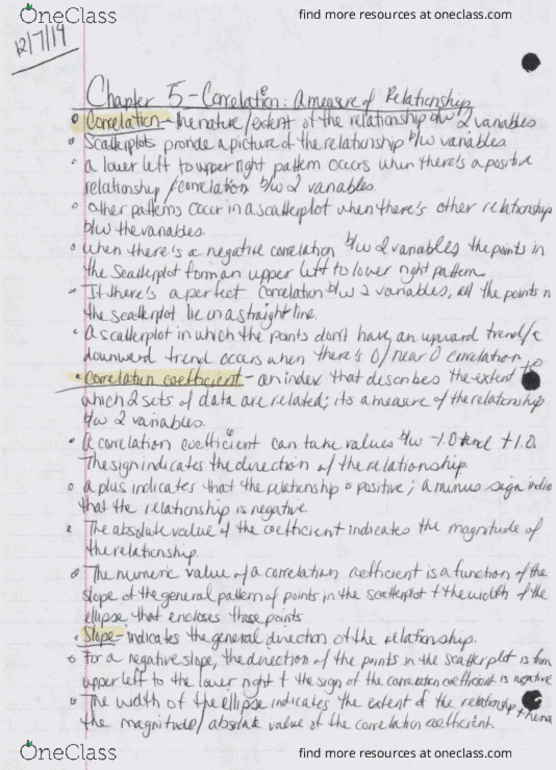 OneClass
find more resources at oneclass.com
12/7/14
Chapter 5 - Correlation: a measure of Relationship
Correlation - the nature/extent of the relationship b/w 2 variables
Scatterplots provide a picture of the relationship b/w variables
a lower left to upper right pattern occurs when there's a positive
relationship/correlation b/w 2 variables.
Other patterns occur in a scatterplot when there's other relationships
b/w the variables.
when there's a negative correlation b/w 2 variables the points in
the scatterplot form an upper left to lower right pattern.
If there's a perfect correlation b/w 2 variables, all the points in
the scatterplot lie on a straight line.
a scatterplot in which the points don't have an upward trend/
downward trend occurs when there's 0/near 0 correlation
Correlation coefficient - an index that describes the extent to
which 2 sets of data are related; its a measure of the relationship
b/w 2 variables.
a correlation coefficient can take values b/w -1.0 and +1.0.
The sign indicates the direction of the relationship.
a plus indicates that the relationship is positive; a minus sign indic
that the relationship is negative.
The absolute value of the coefficient indicates the magnitude of
the relationship.
The numeric value of a correlation coefficient is a function of the
slope of the general pattern of points in the scatterplot + the width of the
ellipse that encloses those points
Slope - indicates the general direction of the relationship.
for a negative slope, the direction of the points in the scatterplot is from
upper left to the lower right + the sign of the correlation coefficient is negative
The width of the ellipse indicates the extent of the relationship
the magnitude/absolute value of the correlation coefficient.
OneClass
find more resources at oneclass.com